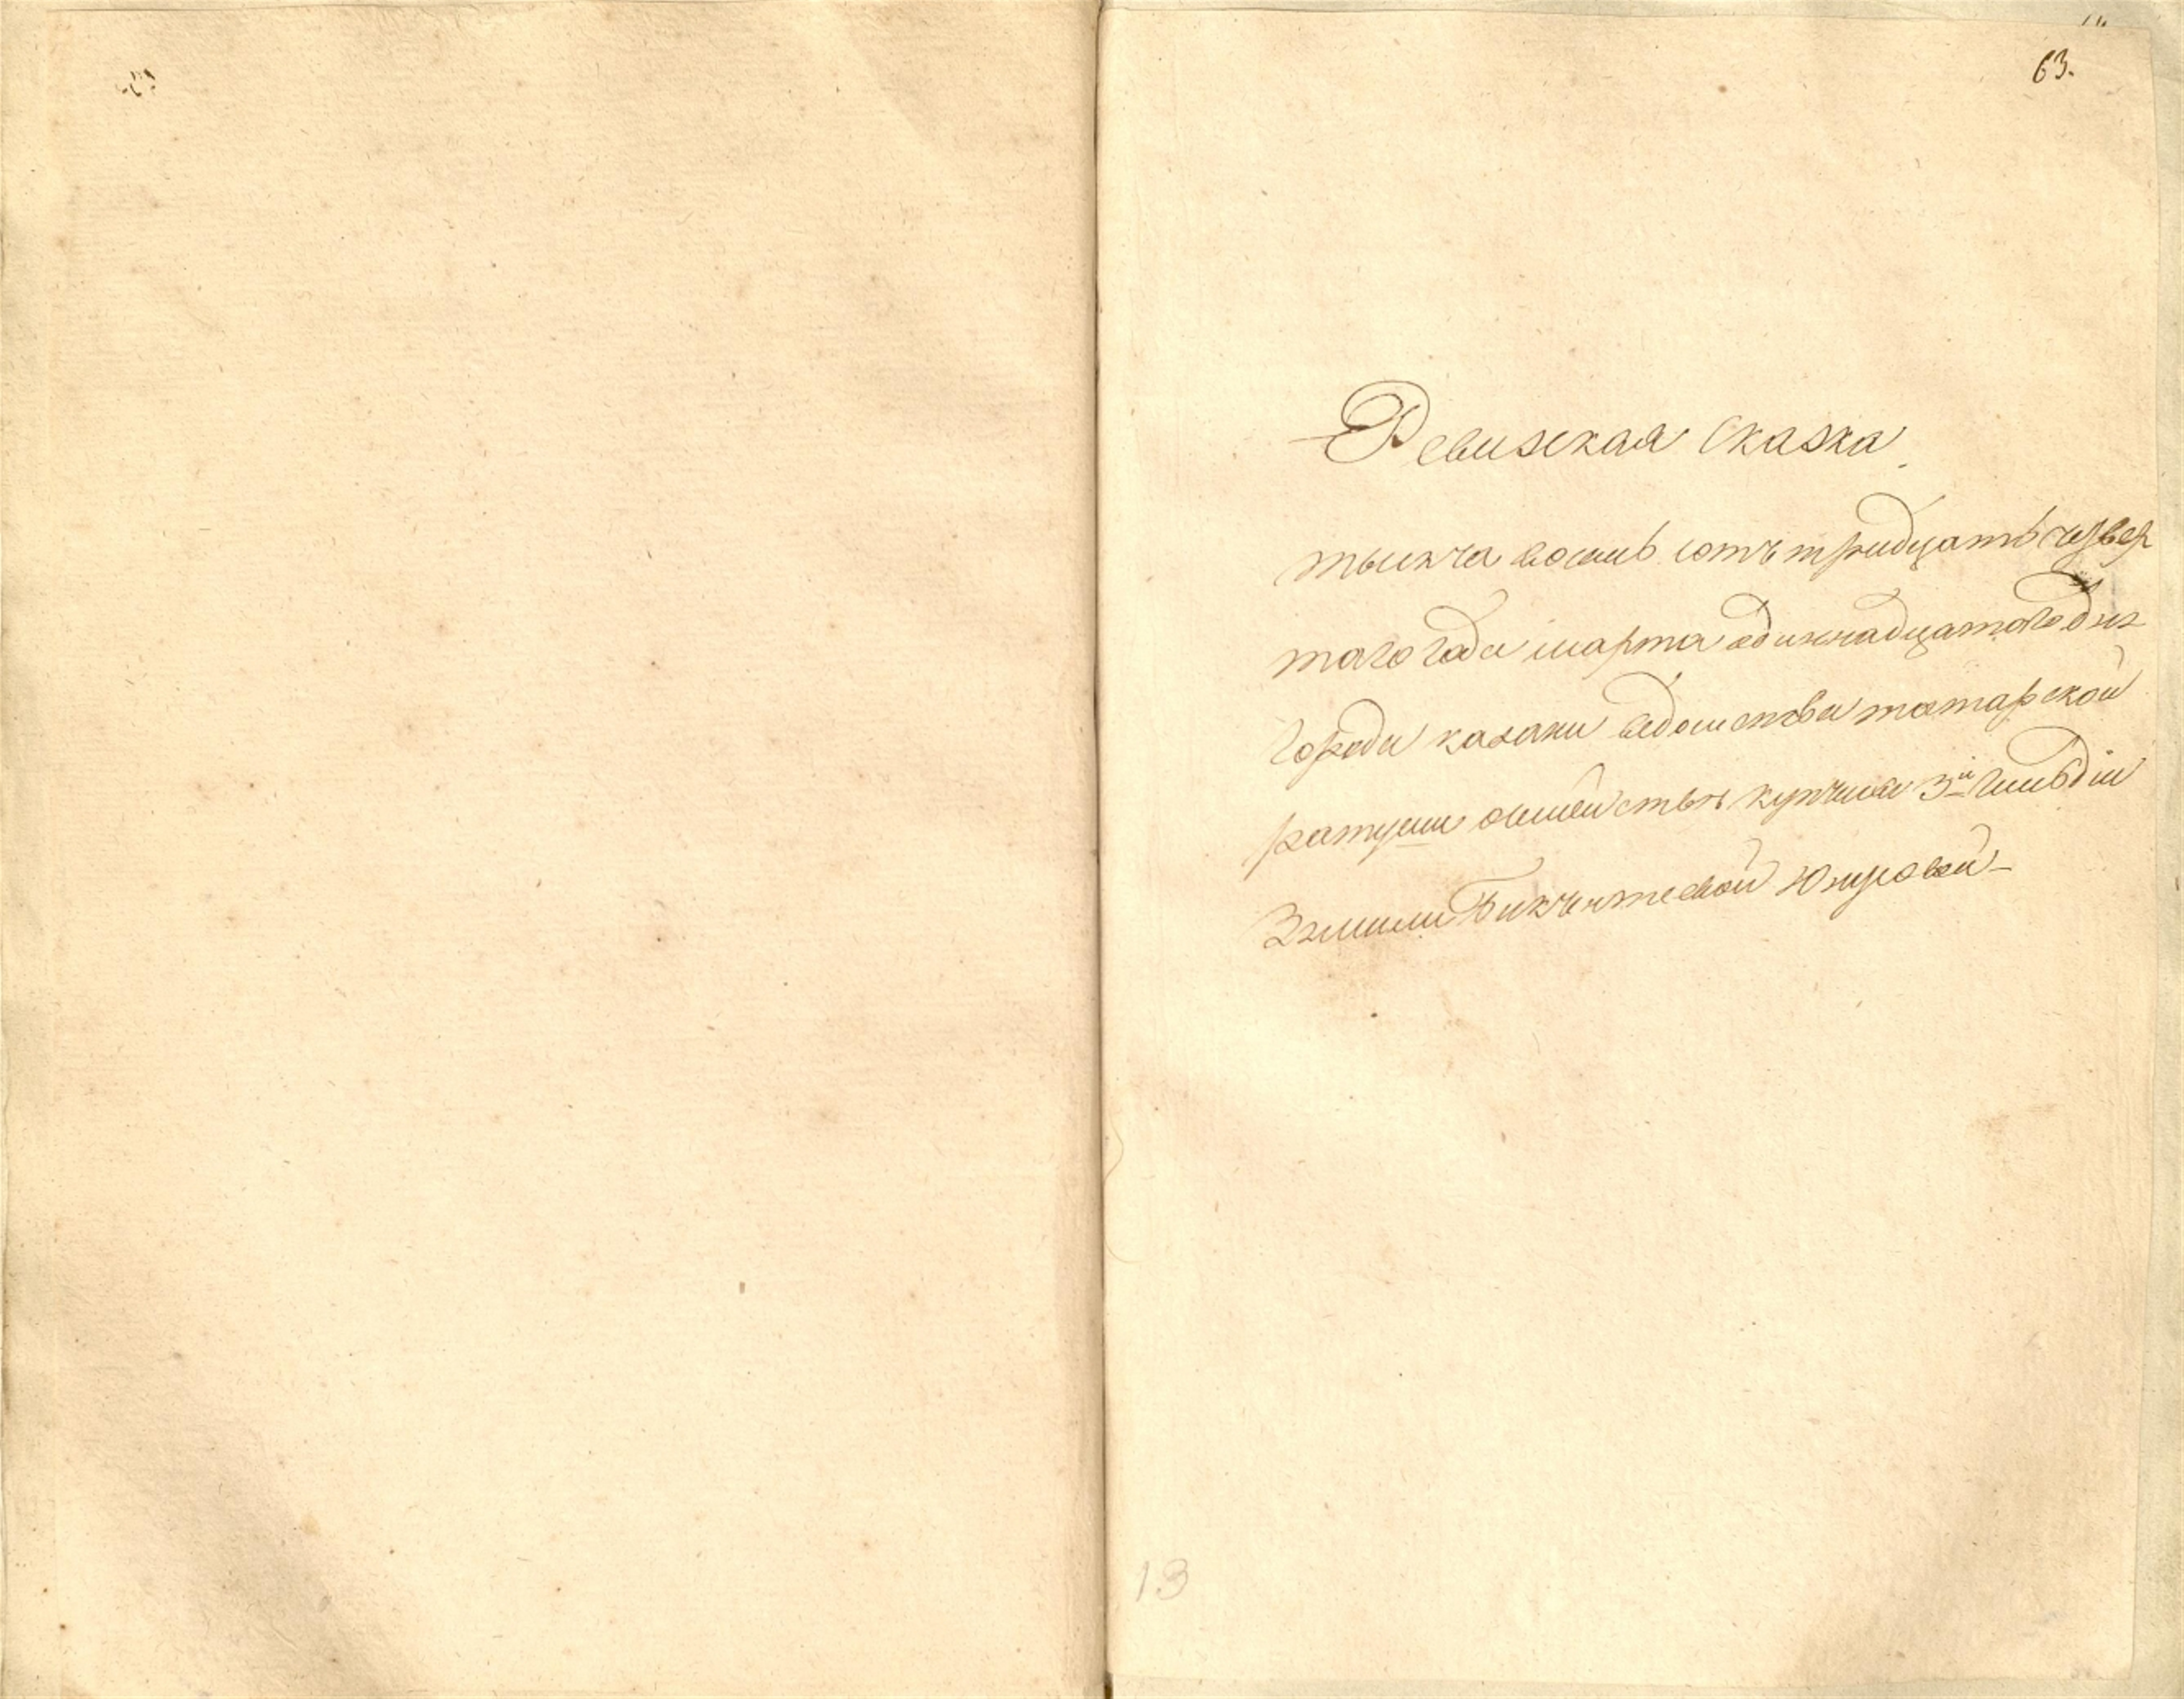 63.
Ревизская Сказка
тысяча восемь сотъ тридцать четвер
таго года марта одиннадцатаго дня
города казани ведомства татарской
ратуши о семействе купчихи 3й гильдіи
Бикчентеевой Юнусовой
13